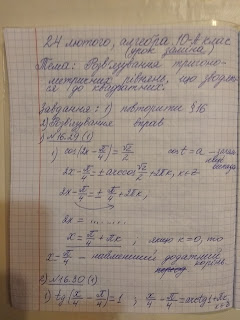 24 лютого, алгебра 10-А клас
(урок заміна)
Тема: Розв'язування тригоно-
метричних рівнянь, що зводять-
ся до квадратних.
Завдання: 1) повторити §16
2) Розв'язування вправ
1) №16.29 (1)
1) cos(2x - π/4) = √2/2    cos t = a -
2x - π/4 = ± arccos √2/2 + 2πk, k∈Z
2x - π/4 = ± π/4 + 2πk,
2x = ........
x = π/4 + πk , якщо k=0, то
x = π/4 - найменший додатний
корінь.
2) №16.30 (1)
1) tg(x/4 - π/4) = 1 ; x/4 - π/4 = arctg 1 + πk,